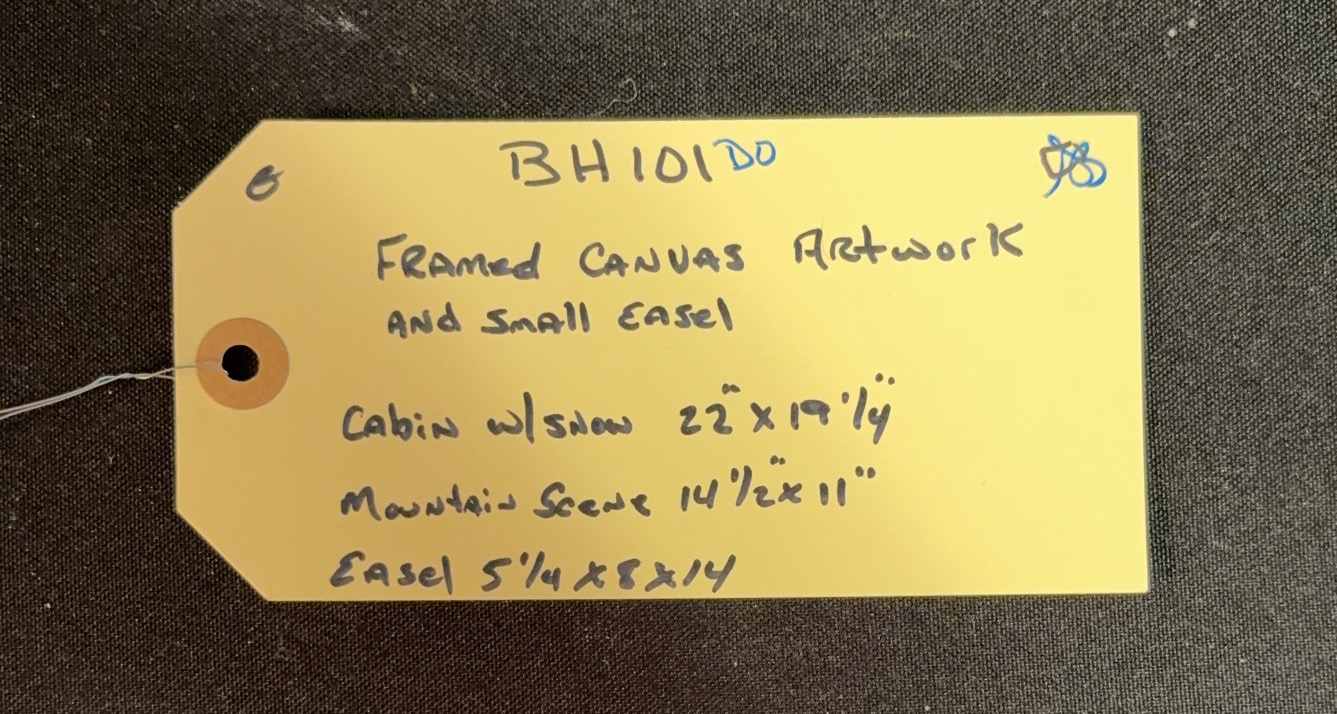 BH101 DO
FRAMed CANVAS ARtworK
ANd SmAll EASel
CAbiN w/SNow 22" x 19 1/4"
MouNtAiN SceNe 14 1/2" x 11"
EASel 5 1/4 x 8 x 14